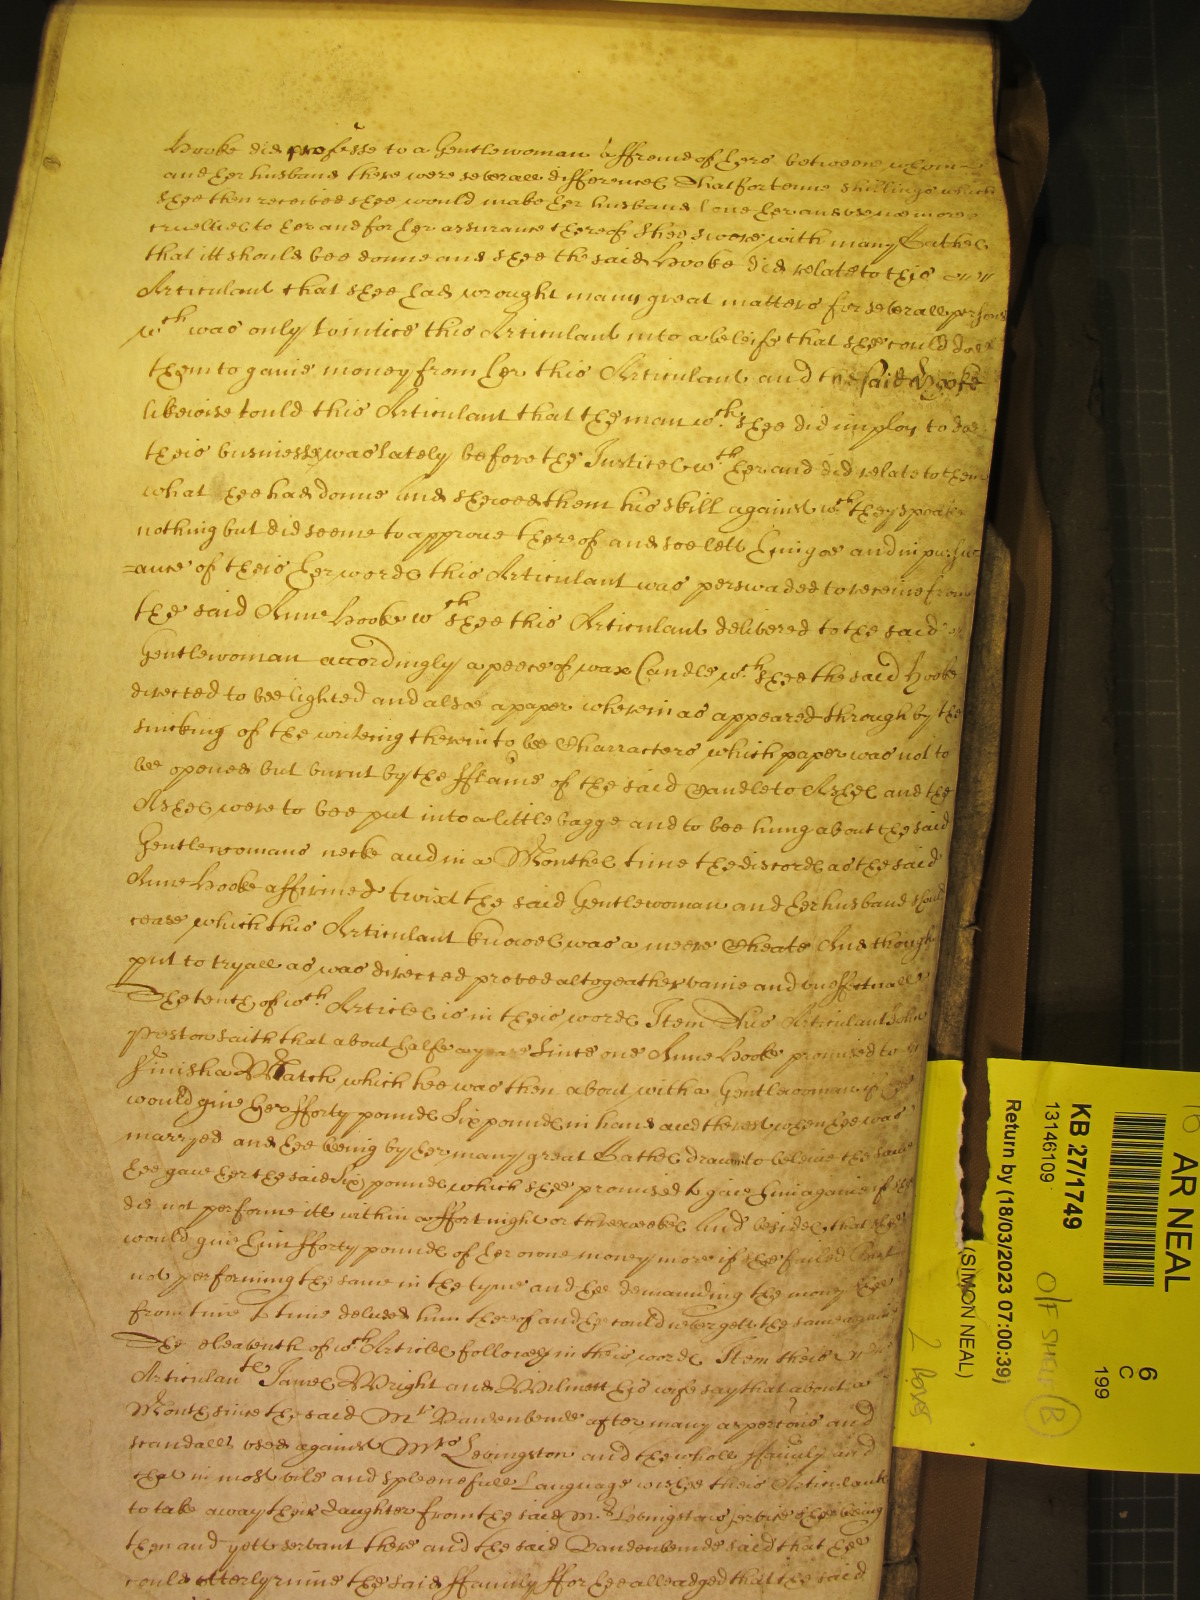 Hooke did professe to a Gentlewoman a ffreind of hers betweene whom
and her husband there were severall differences That for tenne shillings which
shee then received shee would make her husband love her and use no more
cruelties to her and for her assurance thereof Shee swore with many Oathes
that itt should bee donne and shee the said Hooke did relate to this
Articulant that shee had wrought many great matters for severall persons
wch was only to intice this Articulant into a beleife that shee could doe
them to gaine money from her this Articulant and the said Hooke
likewise tould this Articulant that the man wch shee did imploy to doe
theis businesses was lately before the Justices wth her and did relate to them
what hee had donne and shewed them his skill against wch they spoake
nothing but did seeme to approve thereof and soe lett him goe and in pursu
=ance of theis her words this Articulant was perswaded to receive from
the said Anne Hooke wch shee this Articulant delivered to the said
Gentlewoman accordingly a peece of wax Candle wch shee the said Hooke
directed to bee lighted and alsoe a paper wherein as appeared through by the
sincking of the writeing therein to be Charracters which paper was not to
be opened but burnt by the fflame of the said Candle to Ashes and the
Ashes were to bee put into a little bagge and to bee hung about the said
Gentlewomans necke and in a Monthes time the discords as the said
Anne Hooke affirmed twixt the said Gentlewoman and her husband should
cease which this Articulant knowes was a meere Cheate And though
put to tryall as was directed proved altogeather vaine and uneffectuall
The tenth of wch Articles is in theis words Item This Articulant John
Preston saith that about halfe a yeare since one Anne Hooke promised to
finish a Match which hee was then about with a Gentlewoman if hee
would give her fforty pounds Six pounds in hand and the rest when hee was
marryed and hee being by her many great Oathes drawne to beleive the same
hee gave her the said Six pounds which shee promised to give him againe if shee
did not performe itt within a ffortnight or three weekes And besides that shee
would give him fforty pounds of her owne money more if shee failed But
not performing the same in the tyme and hee demanding the mony shee
from time to time deluded him thereof and hee could never gett the same againe
The eleaventh of wch Articles followes in theis words Item theis
Articulantes James Wright and Wilmott his wife say that about a
Month since the said Mr Vandenbende after many aspertions and
scandalls used against Mrs Levingston and the wholl ffamily and
that in most vile and spleenefull Language wished theis Articulants
to take away their daughter from the said Mrs Levingstons service shee being
then and yett servant there and the said Vandenbende said that hee
could utterly ruine the said ffamily ffor hee alleadged that the said
AR NEAL
6
C
199
KB 27/1749
13146109
O/F Sheet (B)
Return by (18/03/2023 07:00:39)
(SIMON NEAL)
2 boxes